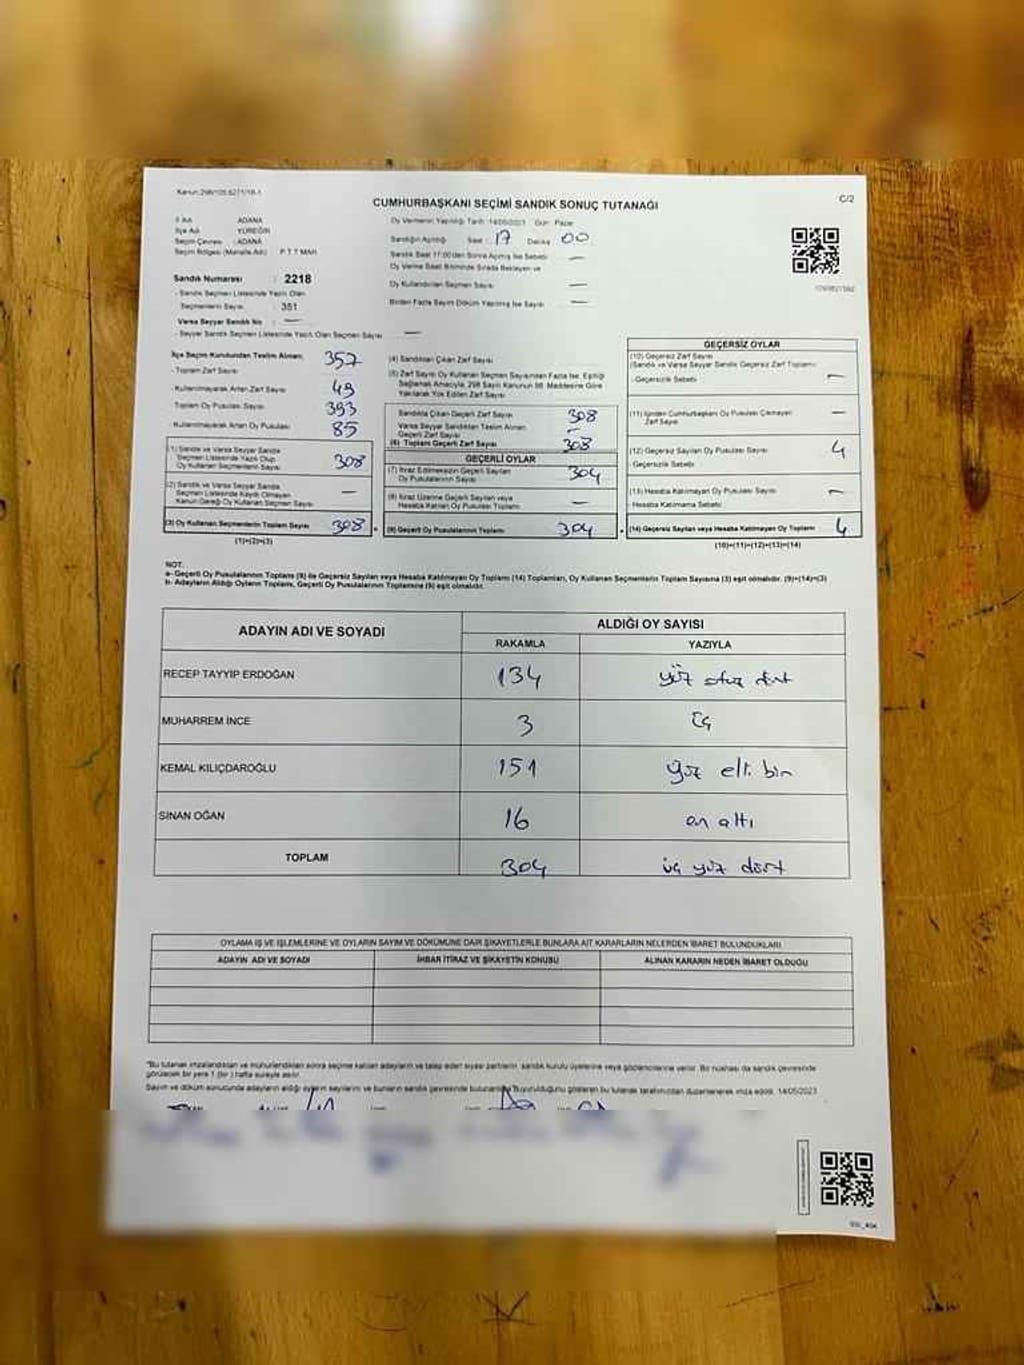 Kanun:298/105.6271/18-1
C/2
CUMHURBAŞKANI SEÇİMİ SANDIK SONUÇ TUTANAĞI
İl Adı ADANA
İlçe Adı YÜREĞİR
Seçim Çevresi : ADANA
Seçim Bölgesi (Mahalle Adı) P.T.T MAH
Sandık Numarası : 2218
- Sandık Seçmen Listesinde Yazılı Olan
Seçmenlerin Sayısı : 351
Varsa Seyyar Sandık No —
- Seyyar Sandık Seçmen Listesinde Yazılı Olan Seçmen Sayısı —
Oy Vermenin Yapıldığı Tarih :14/05/2023 Gün : Pazar
Sandığın Açıldığı Saat : 17 Dakika 00
Sandık Saat 17:00'den Sonra Açılmış İse Sebebi —
Oy Verme Saati Bitiminde Sırada Bekleyen ve
Oy Kullandırılan Seçmen Sayısı —
Birden Fazla Sayım Döküm Yapılmış İse Sayısı —
İlçe Seçim Kurulundan Teslim Alınan;
- Toplam Zarf Sayısı 357
- Kullanılmayarak Artan Zarf Sayısı 49
Toplam Oy Pusulası Sayısı 393
- Kullanılmayarak Artan Oy Pusulası 85
(1) Sandık ve Varsa Seyyar Sandık
Seçmen Listesinde Yazılı Olup
Oy Kullanan Seçmenlerin Sayısı 308
(2) Sandık ve Varsa Seyyar Sandık
Seçmen Listesinde Kaydı Olmayan
Kanun Gereği Oy Kullanan Seçmen Sayısı —
(3) Oy Kullanan Seçmenlerin Toplam Sayısı 308
(1)+(2)=(3)
(4) Sandıktan Çıkan Zarf Sayısı
(5) Zarf Sayısı Oy Kullanan Seçmen Sayısından Fazla İse, Eşitliği
Sağlamak Amacıyla, 298 Sayılı Kanunun 98. Maddesine Göre
Yakılarak Yok Edilen Zarf Sayısı
Sandıkta Çıkan Geçerli Zarf Sayısı 308
Varsa Seyyar Sandıktan Teslim Alınan
Geçerli Zarf Sayısı —
(6) Toplam Geçerli Zarf Sayısı 308
GEÇERLİ OYLAR
(7) İtiraz Edilmeksizin Geçerli Sayılan
Oy Pusulalarının Sayısı 304
(8) İtiraz Üzerine Geçerli Sayılan veya
Hesaba Katılan Oy Pusulaları Toplamı —
(9) Geçerli Oy Pusulalarının Toplamı 304
GEÇERSİZ OYLAR
(10) Geçersiz Zarf Sayısı
(Sandık ve Varsa Seyyar Sandık Geçersiz Zarf Toplamı)
- Geçersizlik Sebebi —
(11) İçinden Cumhurbaşkanı Oy Pusulası Çıkmayan
Zarf Sayısı —
(12) Geçersiz Sayılan Oy Pusulası Sayısı 4
- Geçersizlik Sebebi
(13) Hesaba Katılmayan Oy Pusulası Sayısı —
- Hesaba Katılmama Sebebi
(14) Geçersiz Sayılan veya Hesaba Katılmayan Oy Toplamı 4
(10)+(11)+(12)+(13)=(14)
NOT:
a- Geçerli Oy Pusulalarının Toplamı (9) ile Geçersiz Sayılan veya Hesaba Katılmayan Oy Toplamı (14) Toplamları, Oy Kullanan Seçmenlerin Toplam Sayısına (3) eşit olmalıdır. (9)+(14)=(3)
b- Adayların Aldığı Oyların Toplamı, Geçerli Oy Pusulalarının Toplamına (9) eşit olmalıdır.
ADAYIN ADI VE SOYADI ALDIĞI OY SAYISI
RAKAMLA YAZIYLA
RECEP TAYYİP ERDOĞAN 134 yüz otuz dört
MUHARREM İNCE 3 üç
KEMAL KILIÇDAROĞLU 151 yüz elli bir
SİNAN OĞAN 16 on altı
TOPLAM 304 üç yüz dört
OYLAMA İŞ VE İŞLEMLERİNE VE OYLARIN SAYIM VE DÖKÜMÜNE DAİR ŞİKAYETLERLE BUNLARA AİT KARARLARIN NELERDEN İBARET BULUNDUKLARI
ADAYIN ADI VE SOYADI İHBAR İTİRAZ VE ŞİKAYETİN KONUSU ALINAN KARARIN NEDEN İBARET OLDUĞU
"Bu tutanak imzalandıktan ve mühürlendikten sonra seçime katılan adayların ve talep eden siyasi partilerin, sandık kurulu üyelerine veya gözlemcilerine verilir. Bir nüshası da sandık çevresinde
görülecek bir yere 1 (bir) hafta süreyle asılır.
Sayım ve döküm sonucunda adayların aldığı oyların sayılarını ve bunların sandık çevresinde duyurulduğunu gösteren bu tutanak tarafımızdan düzenlenerek imza edildi. 14/05/2023